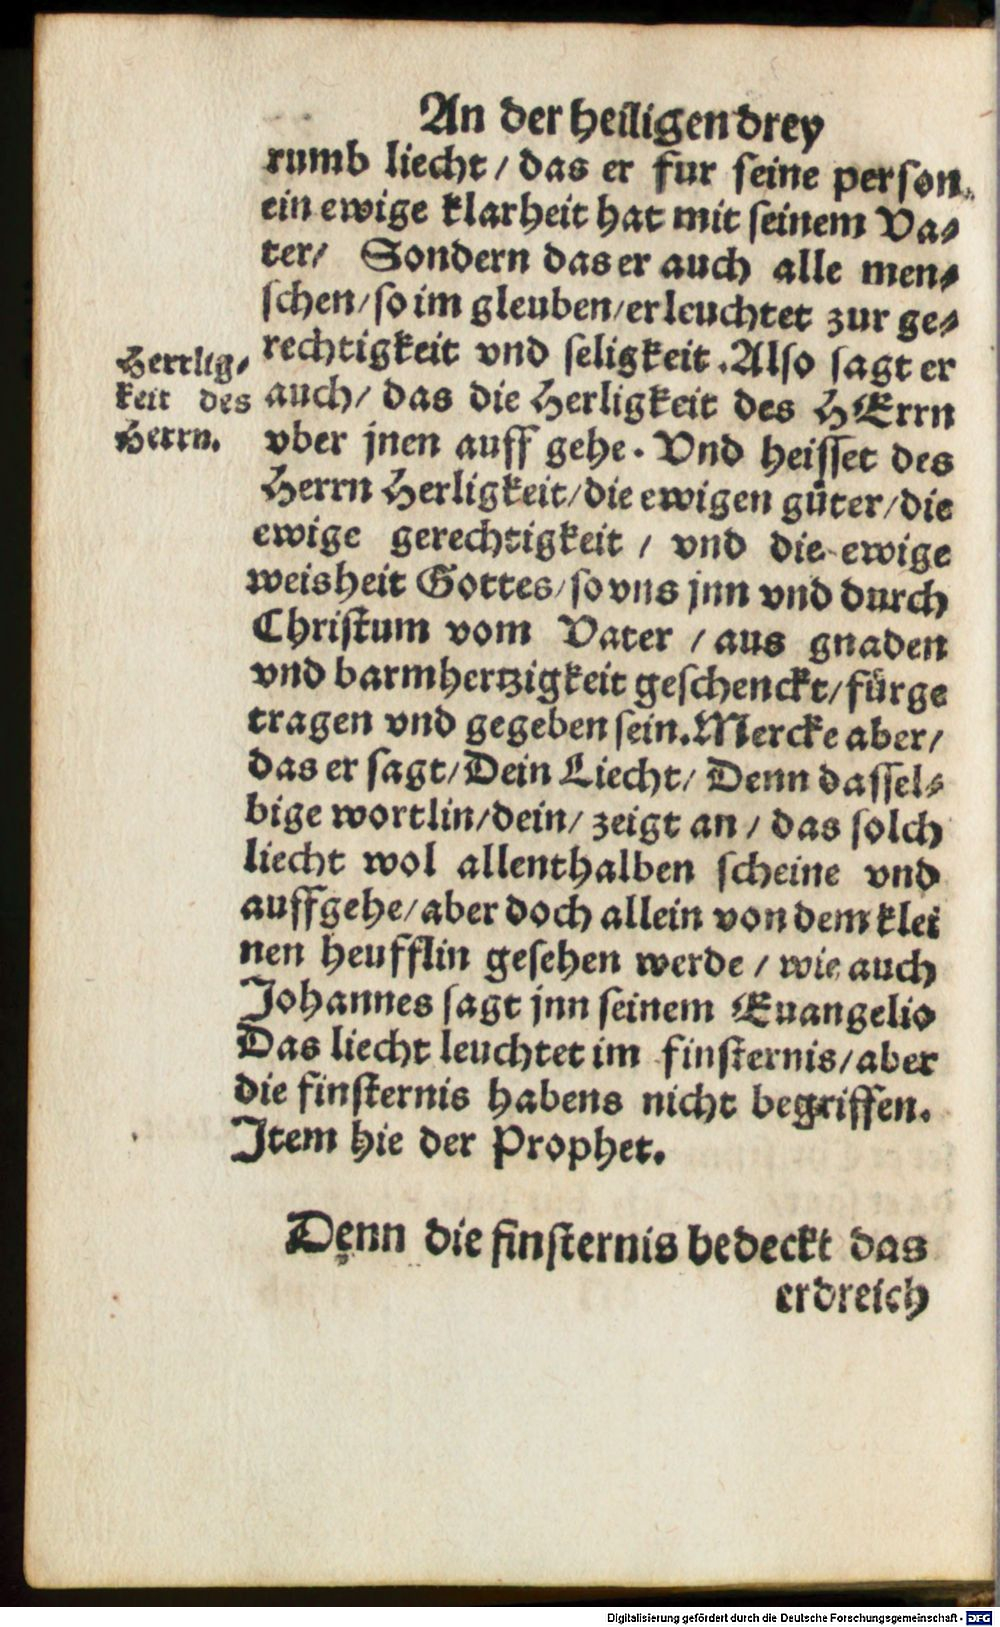 An der heiligen drey
rumb liecht / das er fur seine person
ein ewige klarheit hat mit seinem Va⸗
ter / Sondern das er auch alle men⸗
schen / so im gleuben / erleuchtet zur ge⸗
rechtigkeit vnd seligkeit. Also sagt er
auch / das die Herligkeit des HErrn
vber jnen auff gehe. Vnd heisset des
Herrn Herligkeit / die ewigen güter / die
ewige gerechtigkeit / vnd die ewige
weisheit Gottes / so vns jnn vnd durch
Christum vom Vater / aus gnaden
vnd barmhertzigkeit geschenckt / fürge
tragen vnd gegeben sein. Mercke aber /
das er sagt / Dein Liecht / Denn dassel⸗
bige wortlin / dein / zeigt an / das solch
liecht wol allenthalben scheine vnd
auffgehe / aber doch allein von dem klei
nen heufflin gesehen werde / wie auch
Johannes sagt jnn seinem Euangelio
Das liecht leuchtet im finsternis / aber
die finsternis habens nicht begriffen.
Item hie der Prophet.
Denn die finsternis bedeckt das
erdreich
Herrlig⸗
keit des
Herrn.
Digitalisierung gefördert durch die Deutsche Forschungsgemeinschaft - DFG